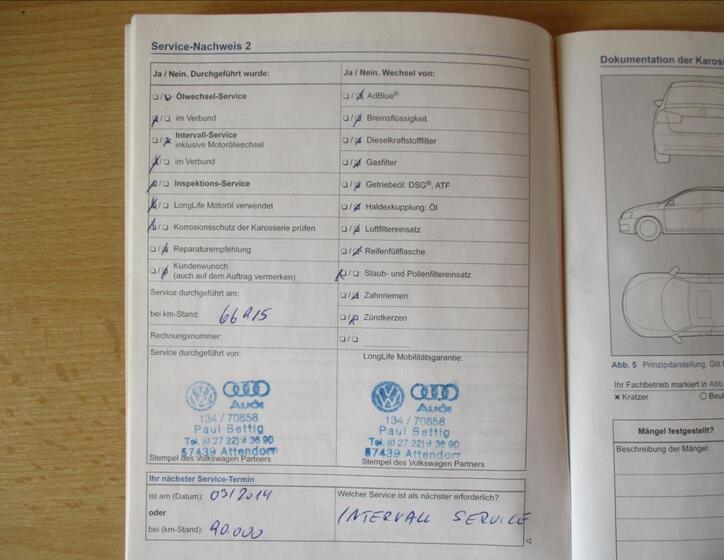 Service-Nachweis 2
Ja / Nein. Durchgeführt wurde:
Ölwechsel-Service
im Verbund
Intervall-Service
inklusive Motorölwechsel
im Verbund
Inspektions-Service
LongLife Motoröl verwendet
Korrosionsschutz der Karosserie prüfen
Reparaturempfehlung
Kundenwunsch
(auch auf dem Auftrag vermerken)
Service durchgeführt am:
bei km-Stand:
Rechnungsnummer:
Service durchgeführt von:
Audi
134 / 70858
Paul Bettig
57439 Attendorn
Stempel des Volkswagen Partners
Ja / Nein. Wechsel von:
AdBlue®
Bremsflüssigkeit
Dieselkraftstofffilter
Gasfilter
Getriebeöl: DSG®, ATF
Haldexkupplung: Öl
Luftfiltereinsatz
Reifenfüllflasche
Staub- und Pollenfiltereinsatz
Zahnriemen
Zündkerzen
LongLife Mobilitätsgarantie:
Audi
134 / 70858
Paul Bettig
57439 Attendorn
Stempel des Volkswagen Partners
Ihr nächster Service-Termin
ist am (Datum): 03/2014
oder
bei (km-Stand): 90.000
Welcher Service ist als nächster erforderlich?
INTERVALL SERVICE
Dokumentation der
Abb. 5 Prinzipdarstellung. Gilt
Ihr Fachbetrieb markiert in Abb
× Kratzer
Mängel festgestellt?
Beschreibung der Mängel: